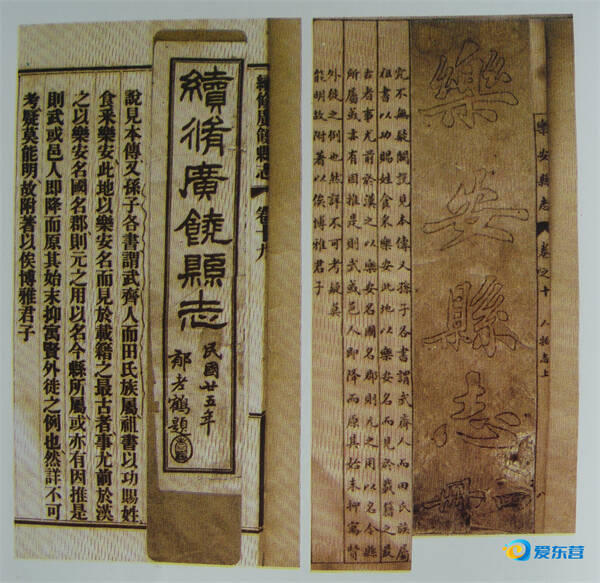 續修廣饒縣志 卷十九
續脩廣饒縣志
民國廿五年
老鶴題
說見本傳又孫子各書謂武齊人而田氏族屬祖書以功賜姓
食采樂安此地以樂安名而見於載籍之最古者事尤前於漢
之以樂安名國名郡則元之用以名今縣所屬或亦有因推是
則武或邑人即降而原其始末抑寓賢外徙之例也然詳不可
考疑莫能明故附著以俟博雅君子
樂安縣志 卷之十 人物志上
樂安縣志
完不無疑闕說見本傳又孫子各書謂武齊人而田氏族屬
祖書以功賜姓食采樂安此地以樂安名而見於載籍之最
古者事尤前於漢之以樂安名國名郡則元之用以名今縣
所屬或亦有因推是則武或邑人即降而原其始末抑寓賢
外徙之例也然詳不可考疑莫
能明故附著以俟博雅君子
爱东营